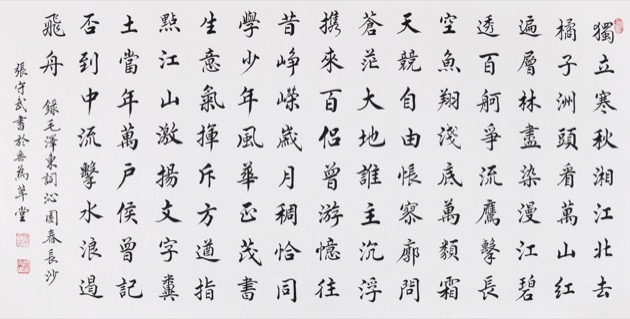 獨立寒秋湘江北去
橘子洲頭看萬山紅
遍層林盡染漫江碧
透百舸爭流鷹擊長
空魚翔淺底萬類霜
天競自由悵寥廓問
蒼茫大地誰主沉浮
携來百侣曾游憶往
昔崢嶸歲月稠恰同
學少年風華正茂書
生意氣揮斥方遒指
點江山激揚文字糞
土當年萬户侯曾記
否到中流擊水浪遏
飛舟 録毛澤東詞沁園春長沙
張守武書於無為草堂